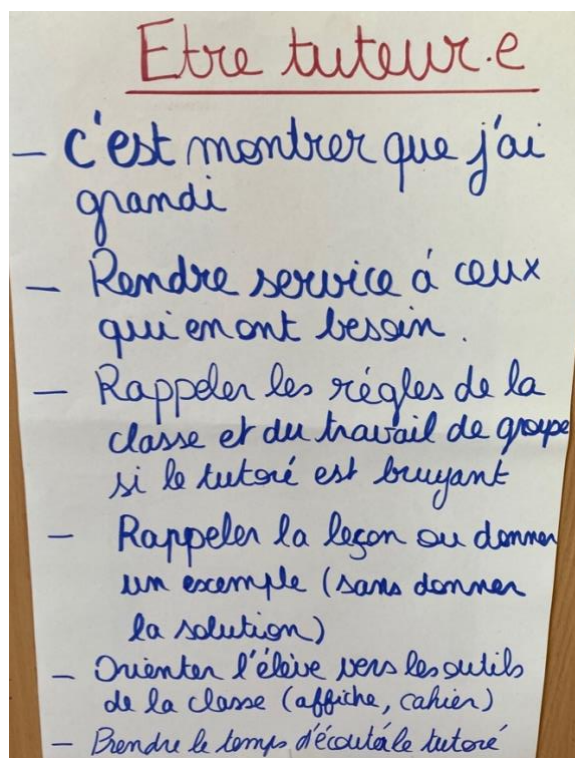 Etre tuteur.e
- c'est montrer que j'ai
grandi
- Rendre service à ceux
qui en ont besoin.
- Rappeler les règles de la
classe et du travail de groupe
si le tutoré est bruyant
- Rappeler la leçon ou donner
un exemple (sans donner
la solution)
- Orienter l'élève vers les outils
de la classe (affiche, cahier)
- Prendre le temps d'écouter le tutoré